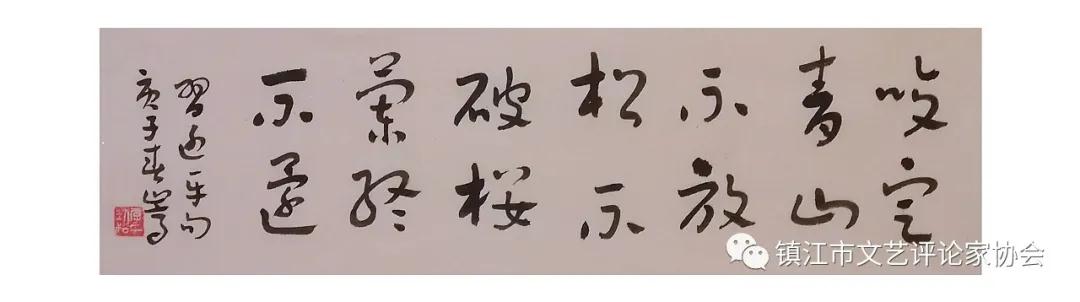 咬定
青山
不放
松不
破楼
蘭終
不還
習近平句
庚子春嵩
镇江市文艺评论家协会